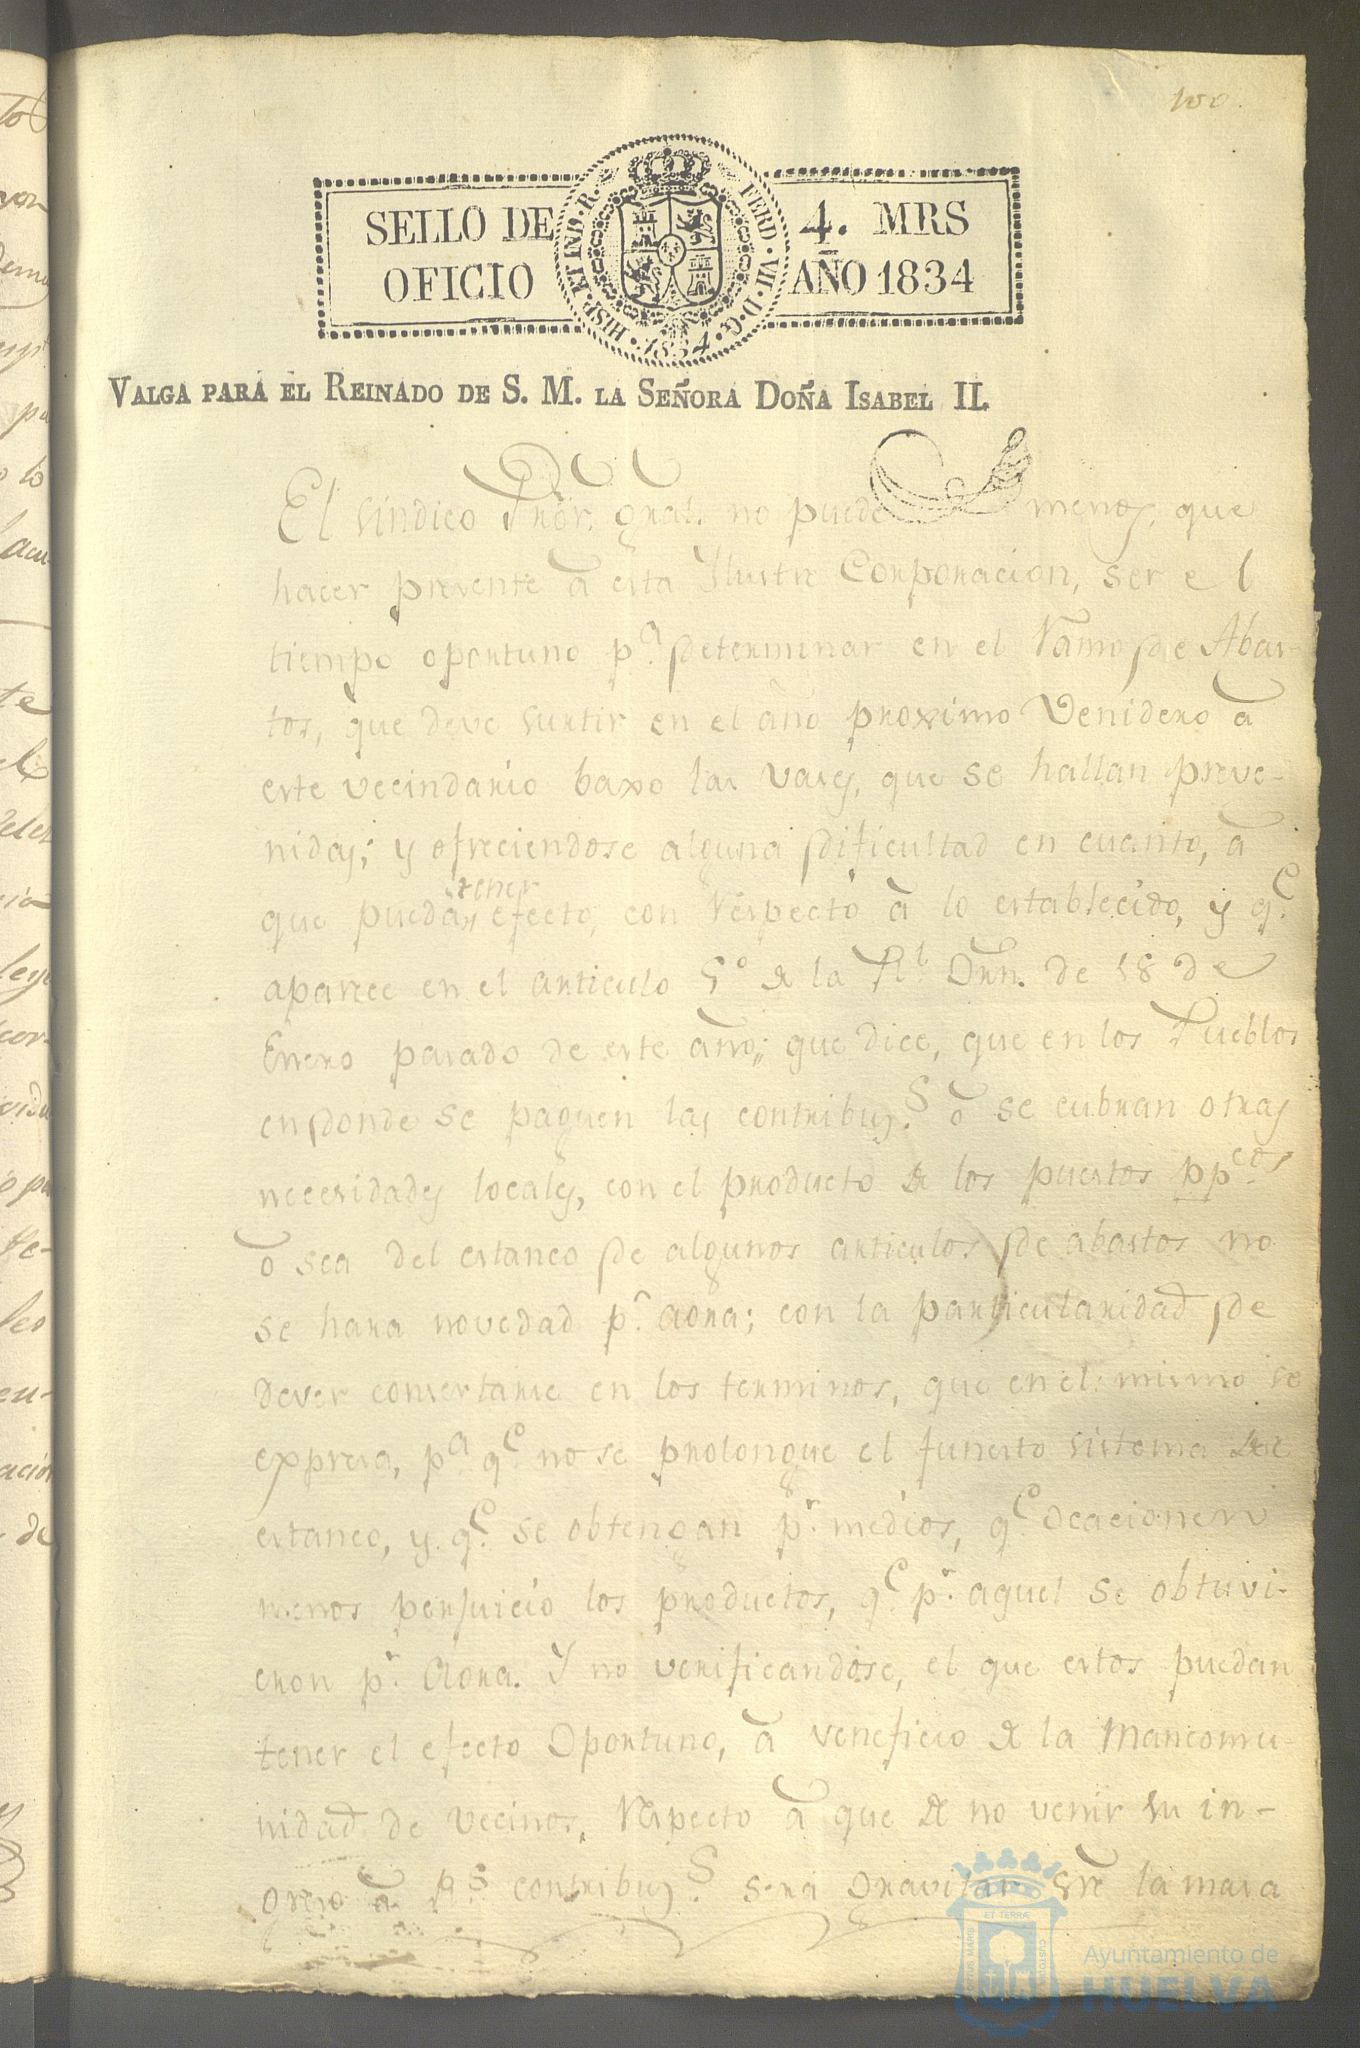 100.
SELLO DE
OFICIO
4. MRS
AÑO 1834
HISP. ET IND. R. FERD. VII. D. G. 1834
VALGA PARA EL REINADO DE S. M. LA SEÑORA DOÑA ISABEL II.
El sindico Pror. gral. no puede menos, que
hacer presente à esta Ilustre Corporacion, ser el
tiempo oportuno p.a determinar en el Ramo de Abas-
tos, que deve surtir en el año proximo Venidero à
este vecindario baxo las vases, que se hallan preve-
nidas; y ofreciendose alguna dificultad en cuanto, à
que puedan tener efecto, con respecto à lo establecido, y q.e
aparece en el articulo 5.o de la Rl. Orn. de 18 de
Enero pasado de este año; que dice, que en los Pueblos
en donde se paguen las contribuz.s ò se cubran otras
necesidades locales, con el producto de los puestos pp.cos
ò sea del estanco de algunos articulos de abastos no
se hara novedad p.r aora; con la particularidad de
dever consertarse en los terminos, que en el mismo se
expresa, p.a q.e no se prolongue el funesto sistema de
estanco, y q.e se obtengan p.r medios, q.e ocacionen
menos perjuicio los productos, q.e p.r aquel se obtuvi-
eron p.r Aora. Y no verificandose, el que estos puedan
tener el efecto Oportuno, à veneficio de la Mancomu-
nidad de vecinos, respecto à que de no venir su in-
greso à R.s contribuz.s sera gravitar sre la masa
Ayuntamiento de
HUELVA